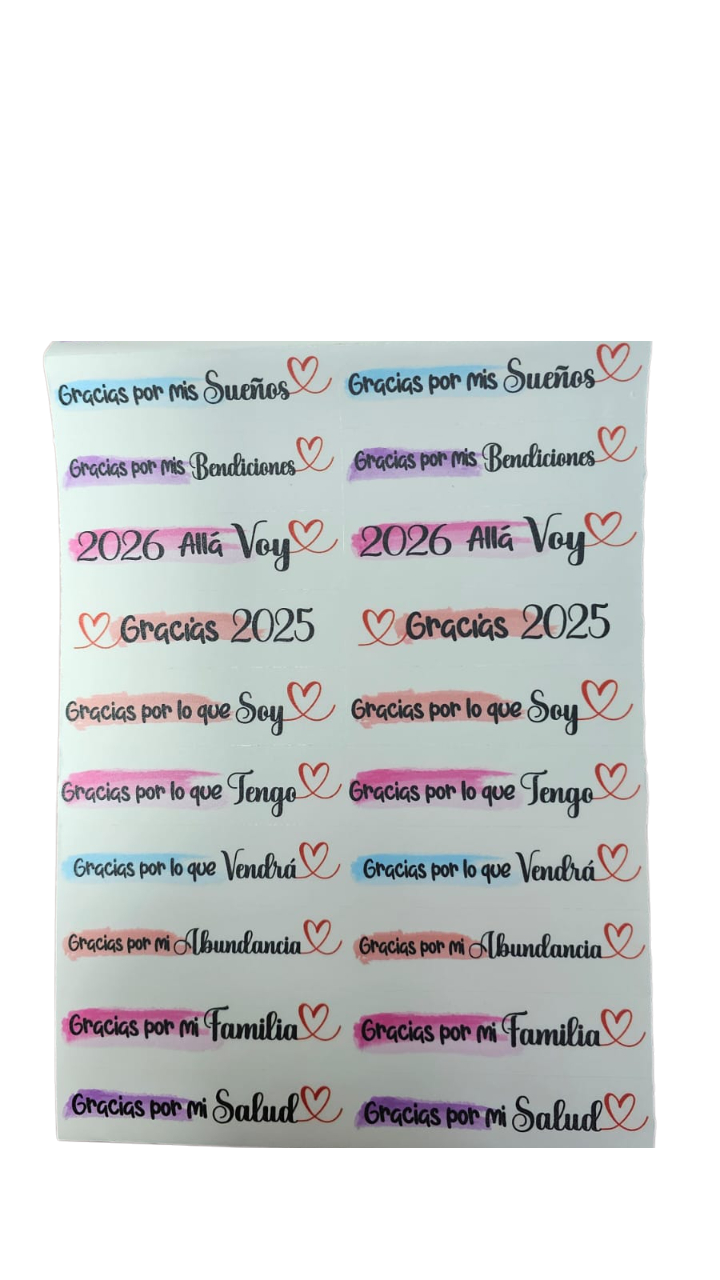 Gracias por mis Sueños Gracias por mis Sueños
Gracias por mis Bendiciones Gracias por mis Bendiciones
2026 Allá Voy 2026 Allá Voy
Gracias 2025 Gracias 2025
Gracias por lo que Soy Gracias por lo que Soy
Gracias por lo que Tengo Gracias por lo que Tengo
Gracias por lo que Vendrá Gracias por lo que Vendrá
Gracias por mi Abundancia Gracias por mi Abundancia
Gracias por mi Familia Gracias por mi Familia
Gracias por mi Salud Gracias por mi Salud